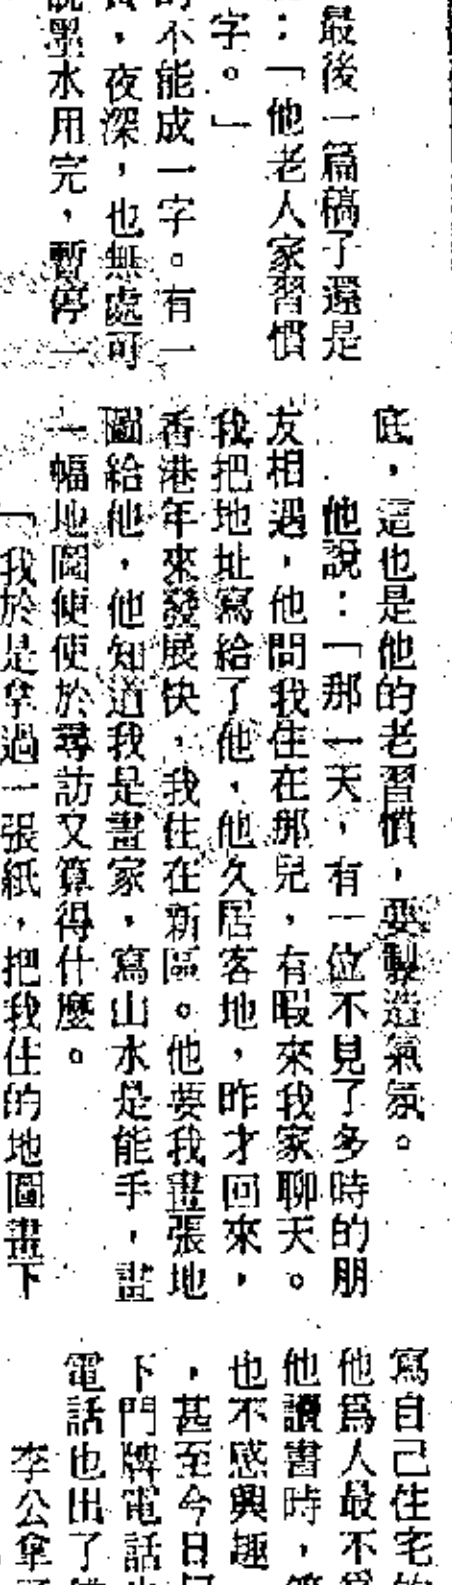 最後一篇稿了還是
：「他老人家習慣
字。」
不能成一字。有一
，夜深，也無處可
墨水用完，暫停一
底，這也是他的老習慣，要製造氣氛。
他說：「那一天，有一位不見了多時的朋
友相遇，他問我住在那兒，有暇來我家聊天。
我把地址寫給了他，他久居客地，昨才回來，
香港年來發展快，我住在新區。他要我畫張地
圖給他，他知道我是畫家，寫山水是能手，畫
一幅地圖便使於尋訪又算得什麼。
「我於是拿過一張紙，把我住的地圖畫下
寫自己住宅
他爲人最不
他讀書時，
也不感興趣
，甚至今日
下門牌電話
電話也出了
李公拿